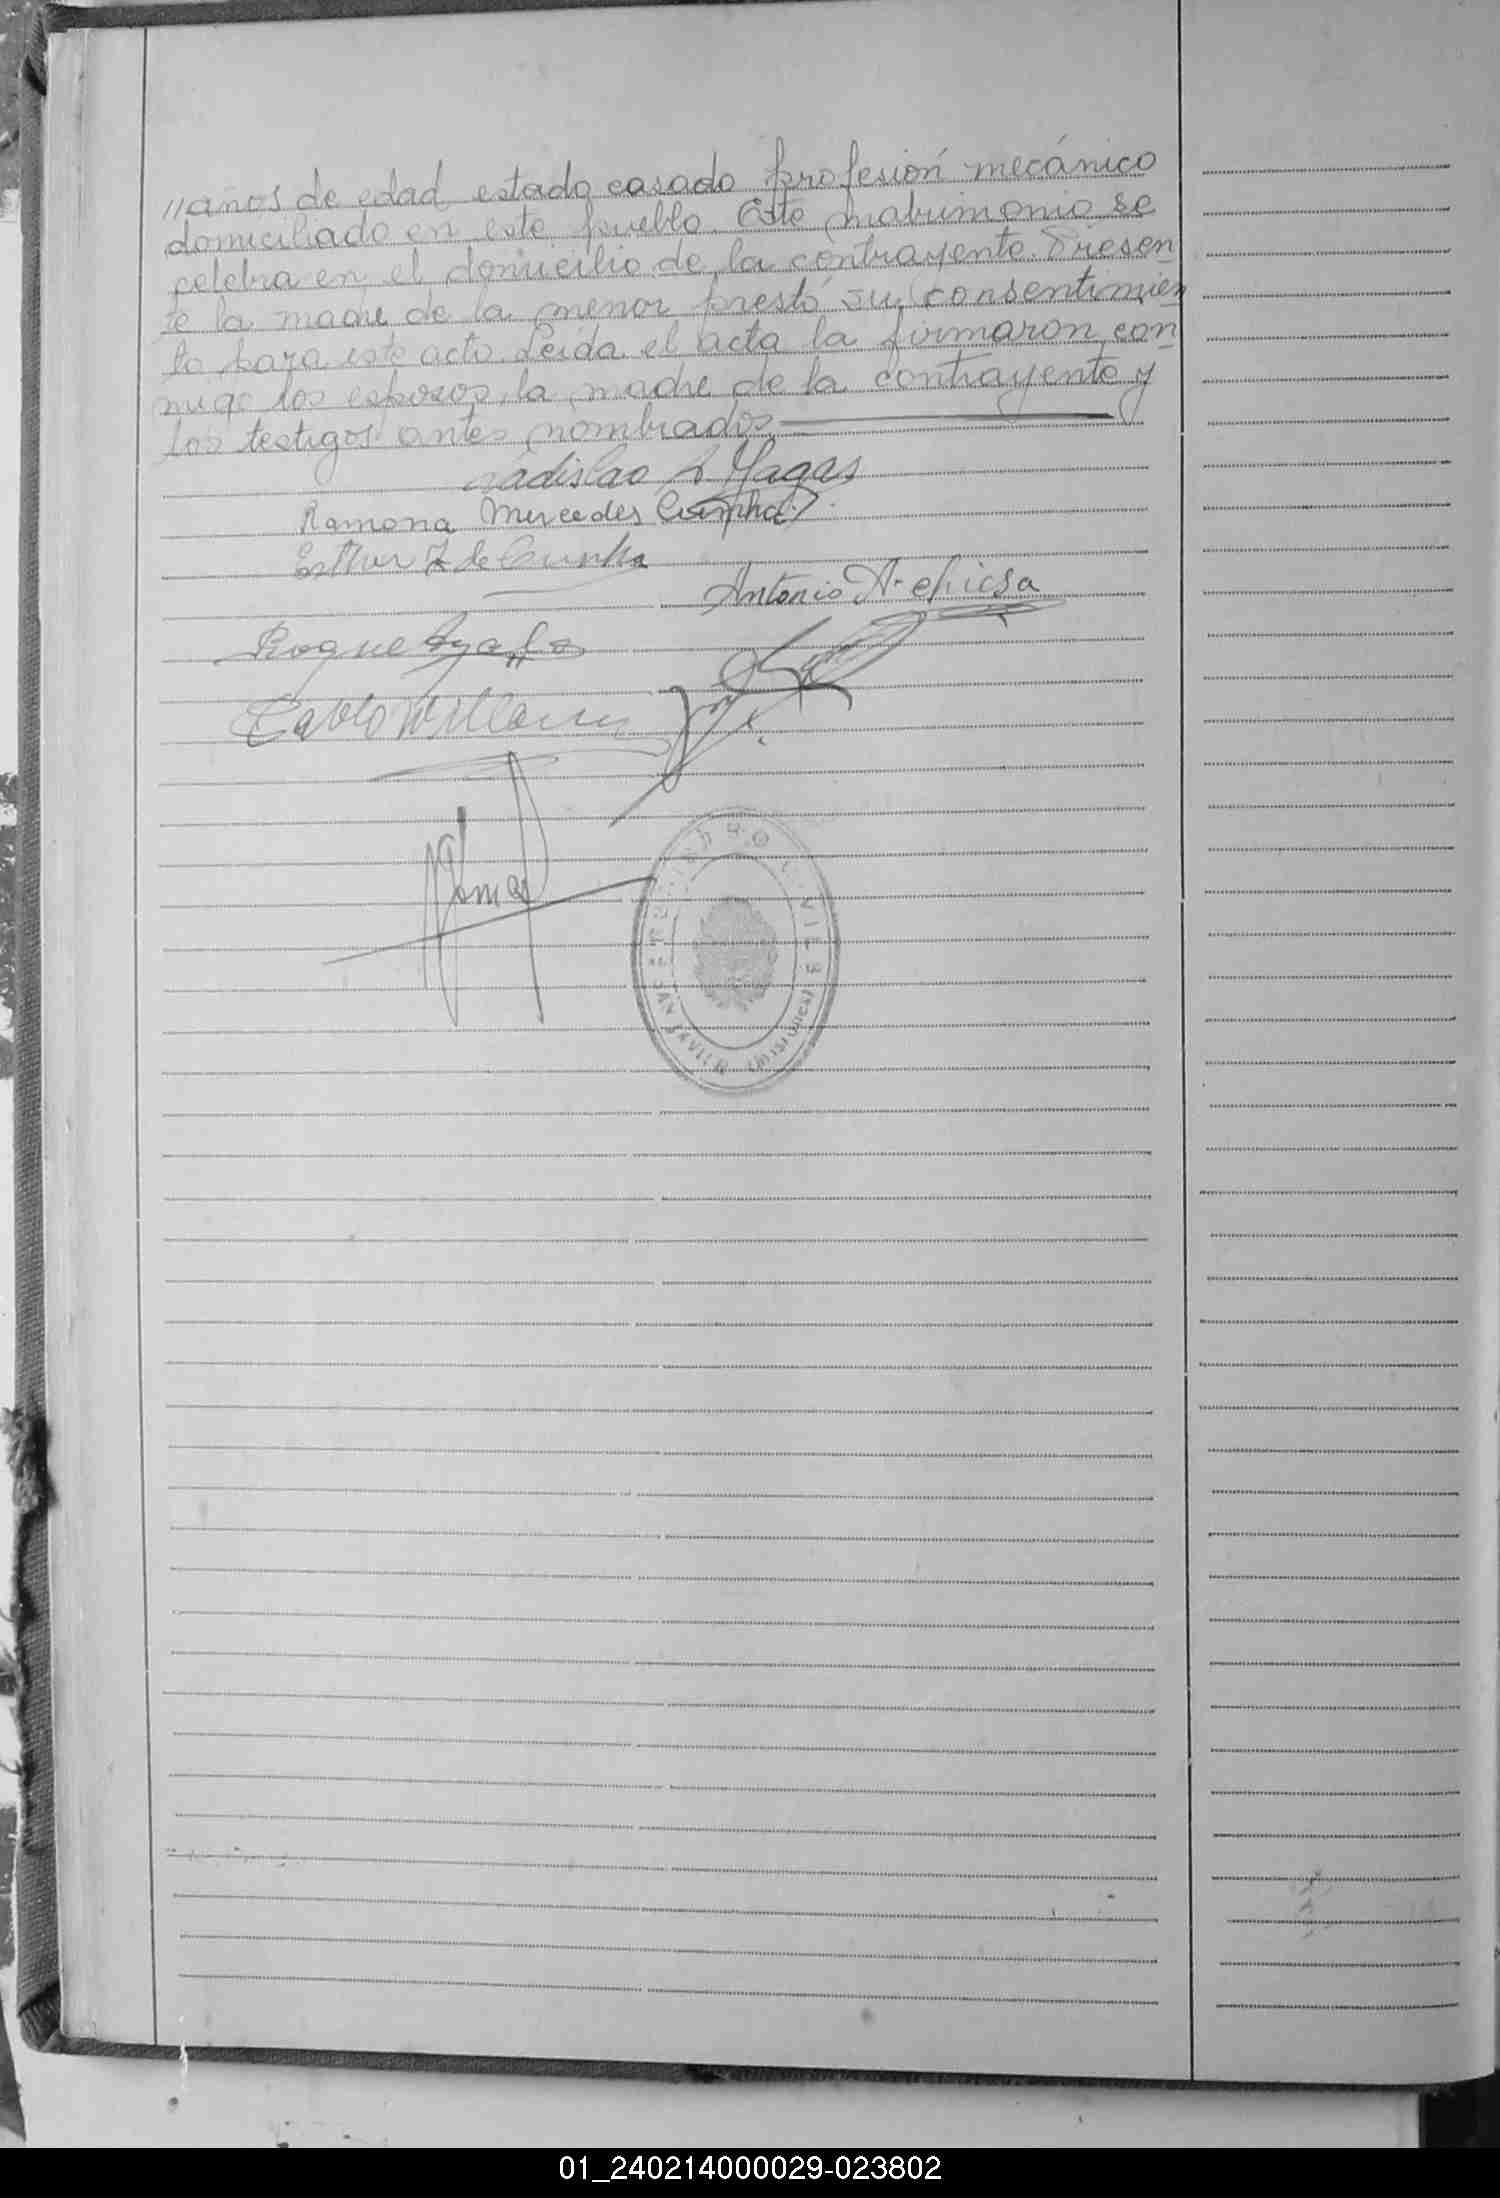 //años de edad, estado casado profesión mecánico
domiciliado en este pueblo. Este matrimonio se
celebra en el domicilio de la contrayente. Presen
te la madre de la menor prestó su consentimien
to para este acto. Leida el acta la firmaron con
migo los esposos, la madre de la contrayente y
los testigos antes nombrados.
Ladislao A. Yagas
Ramona Mercedes Cunha
Esther Z de Cunha
Antonio A. chiesa
Roque Ayala
Pablo
SAN JAVIER (MISIONES)
01_240214000029-023802